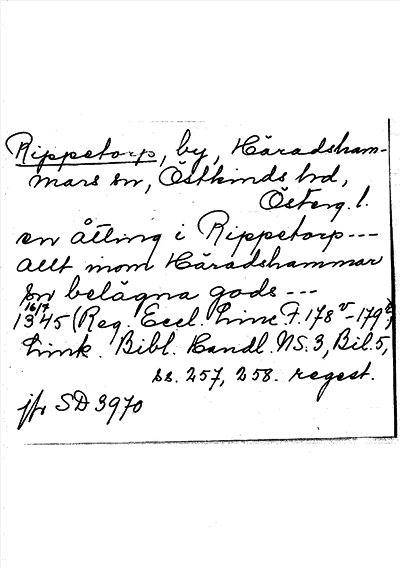 Rippetorp, by, Häradsham-
mars sn, Östkinds hd,
Österg. l.
en åtting i Rippetorp---
allt inom Häradshammar
sn belägna gods---
16/7 1345 (Reg. Eccl. Linc F. 178 v-179 r,
Link. Bibl. Handl. NS. 3, Bil. 5,
ss. 257, 258. regest.
jfr SD 3970